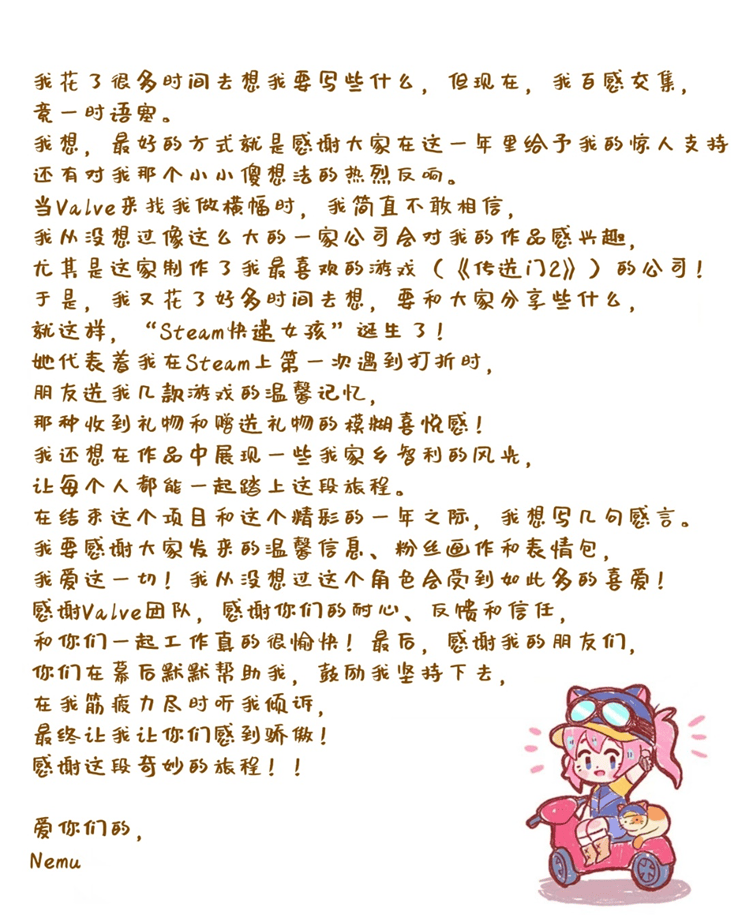 我花了很多时间去想我要写些什么，但现在，我百感交集，
竟一时语塞。
我想，最好的方式就是感谢大家在这一年里给予我的惊人支持
还有对我那个小小傻想法的热烈反响。
当Valve来找我做横幅时，我简直不敢相信，
我从没想过像这么大的一家公司会对我的作品感兴趣，
尤其是这家制作了我最喜欢的游戏（《传送门2》）的公司！
于是，我又花了好多时间去想，要和大家分享些什么，
就这样，“Steam快递女孩”诞生了！
她代表着我在Steam上第一次遇到打折时，
朋友送我几款游戏的温馨记忆，
那种收到礼物和赠送礼物的模糊喜悦感！
我还想在作品中展现一些我家乡智利的风光，
让每个人都能一起踏上这段旅程。
在结束这个项目和这个精彩的一年之际，我想写几句感言。
我要感谢大家发来的温馨信息、粉丝画作和表情包，
我爱这一切！我从没想过这个角色会受到如此多的喜爱！
感谢Valve团队，感谢你们的耐心、反馈和信任，
和你们一起工作真的很愉快！最后，感谢我的朋友们，
你们在幕后默默帮助我，鼓励我坚持下去，
在我筋疲力尽时听我倾诉，
最终让我让你们感到骄傲！
感谢这段奇妙的旅程！！
爱你们的，
Nemu